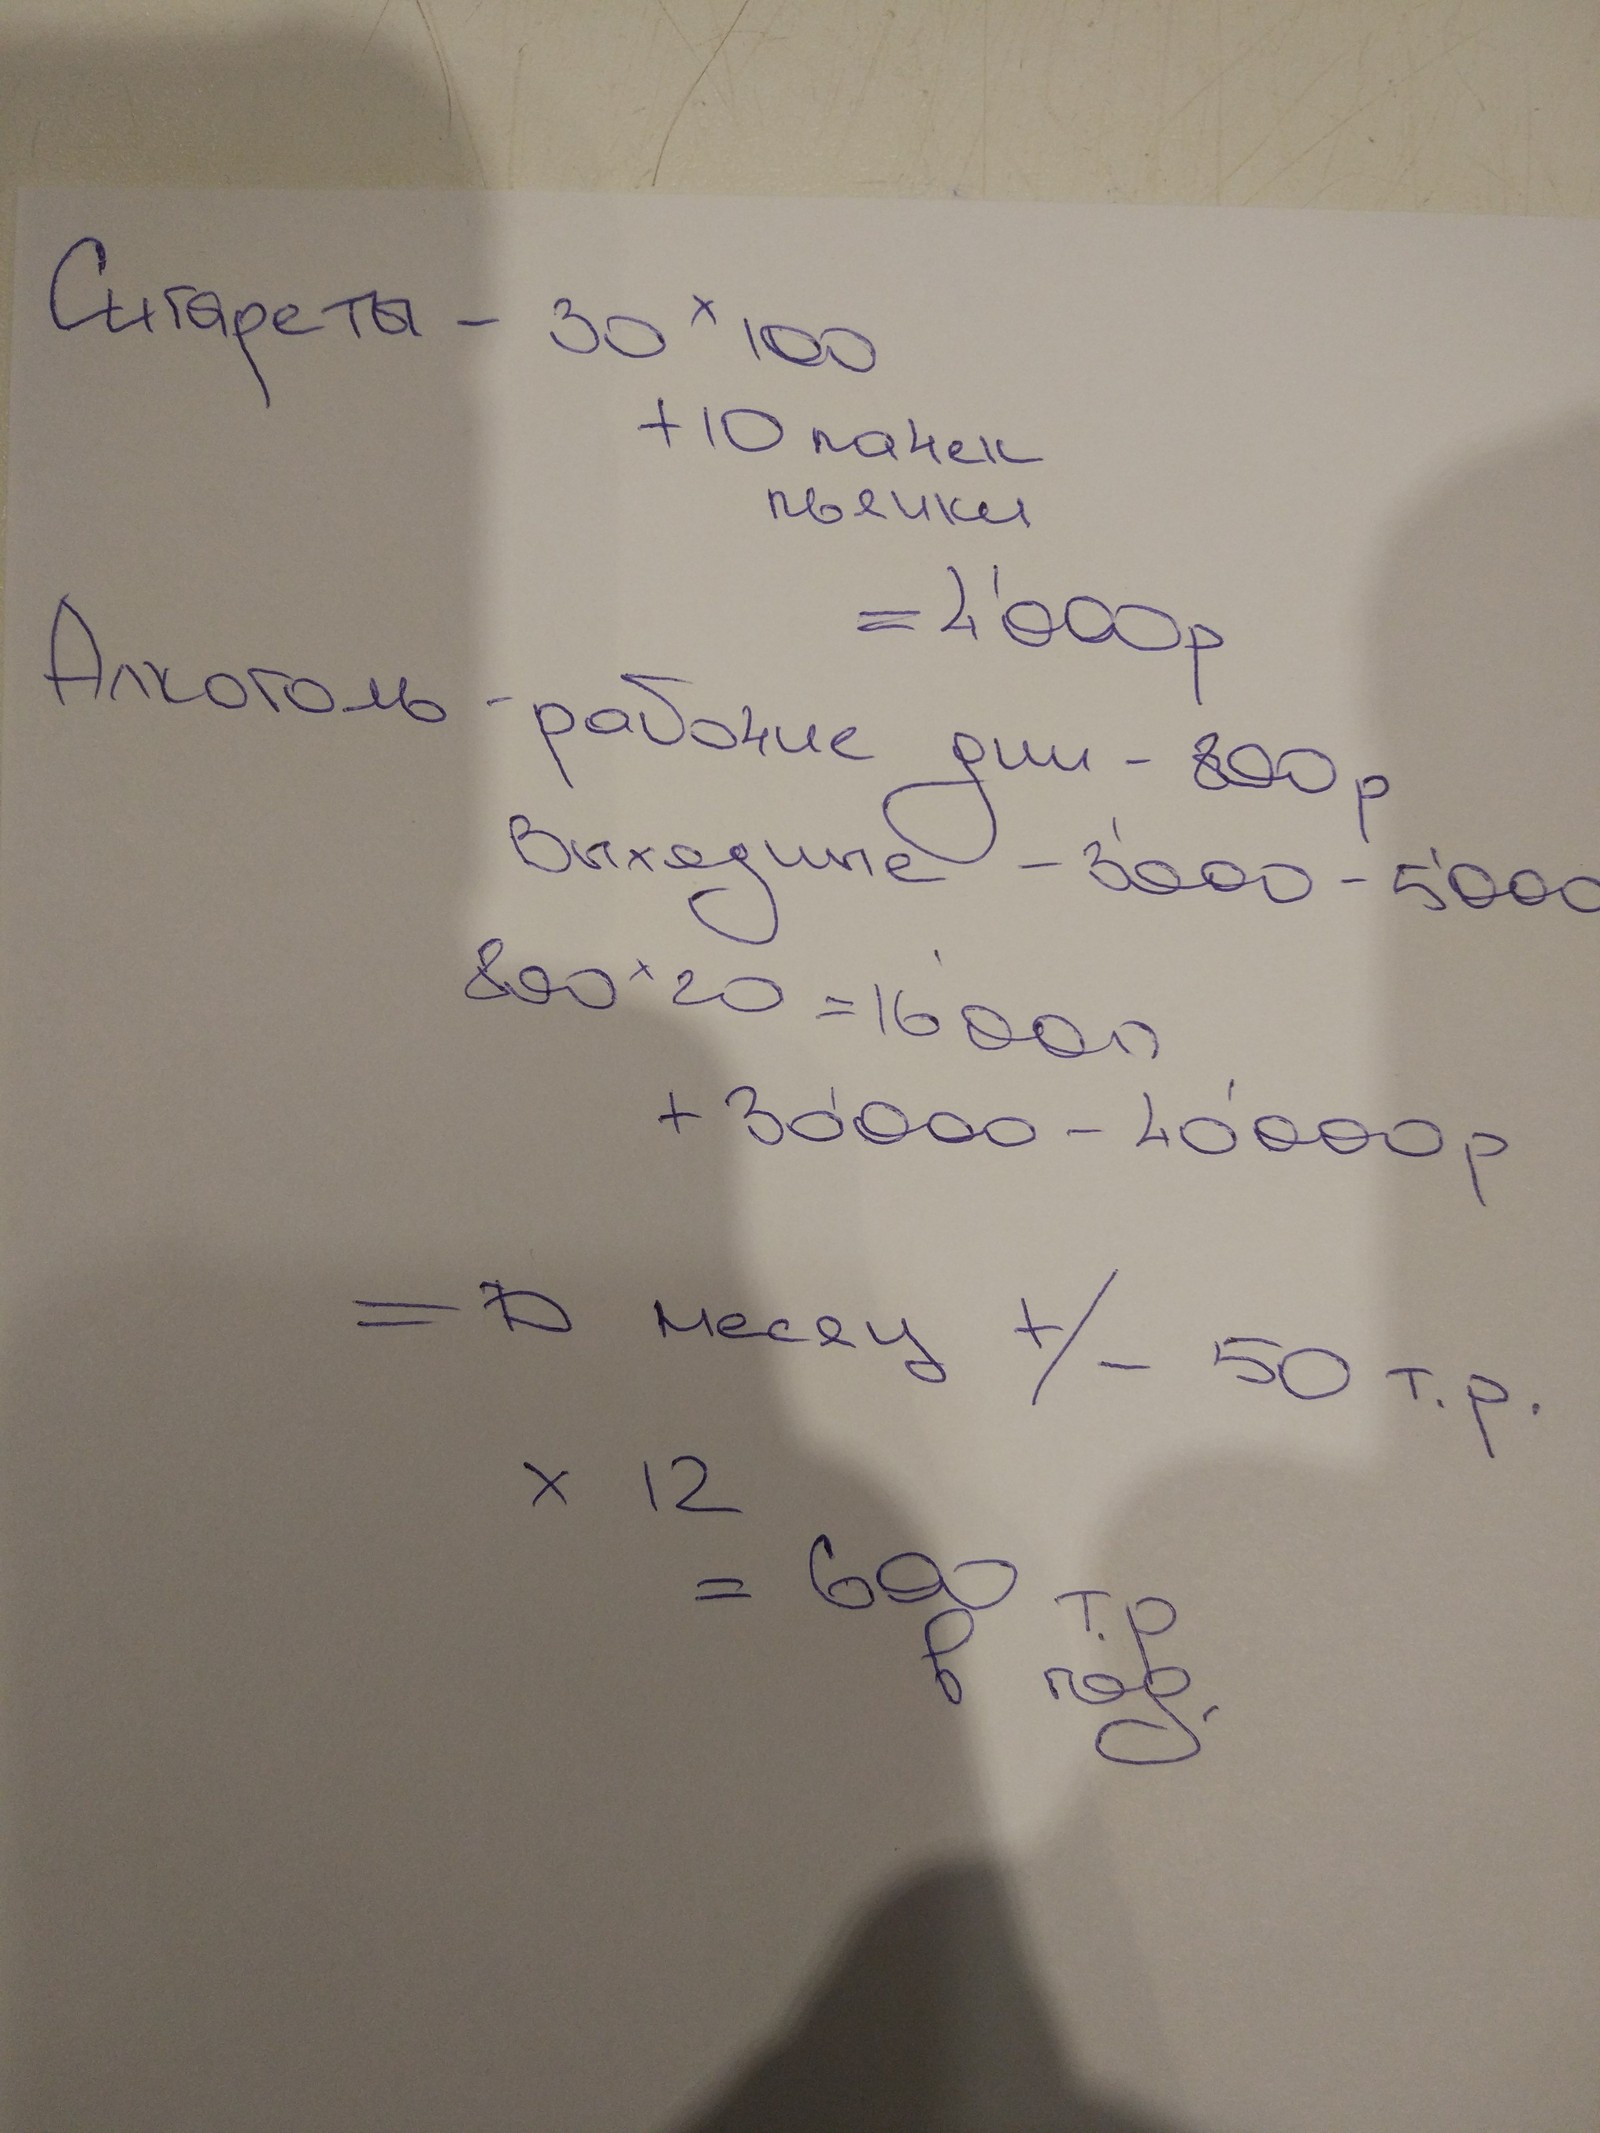 Сигареты - 30 x 100
+ 10 пачек
пьянки
= 4'000р
Алкоголь - рабочие дни - 800р
Выходные - 3'000 - 5'000
800 x 20 = 16'000
+ 30'000 - 40'000р
= месяц +/- 50 т.р.
x 12
= 600 т.р
в год.